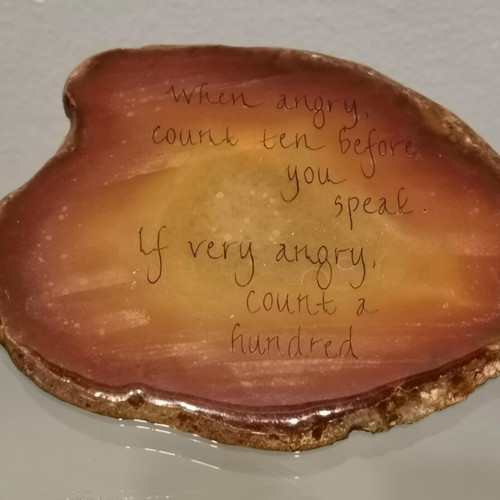 When angry,
count ten before
you
speak.
If very angry,
count a
hundred